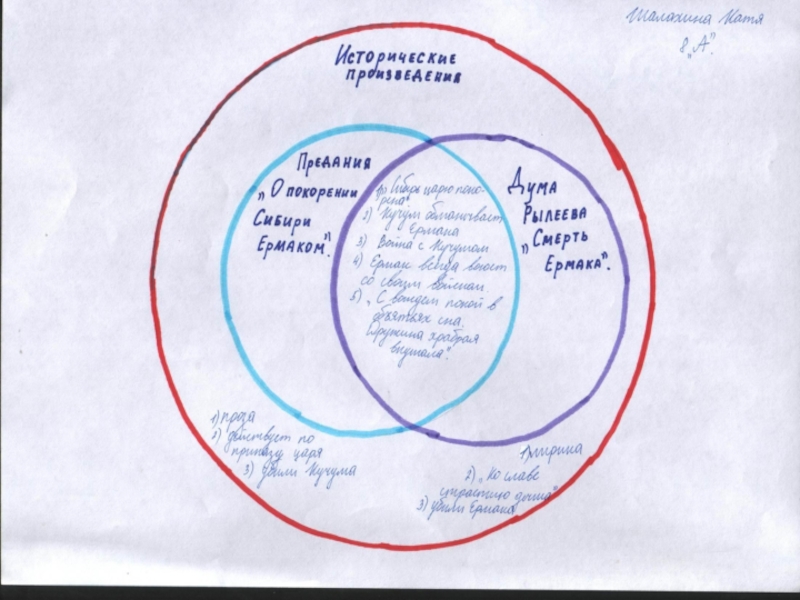 Шалахина Катя
8 „А".
Исторические
произведения
Предания
„О покорении
Сибири
Ермаком".
1) „Сибирь царю поко-
рена"
2) Кучум обманывает
Ермака
3) Война с Кучумом
4) Ермак всегда вместе
со своим войском
5) „С вождем покой в
объятьях сна
Дружина храбрая
вкушала".
Дума
Рылеева
„Смерть
Ермака".
1) проза
2) действует по
приказу царя
3) убили Кучума
1) лирика
2) „Ко славе
страстию дыша"
3) убили Ермака